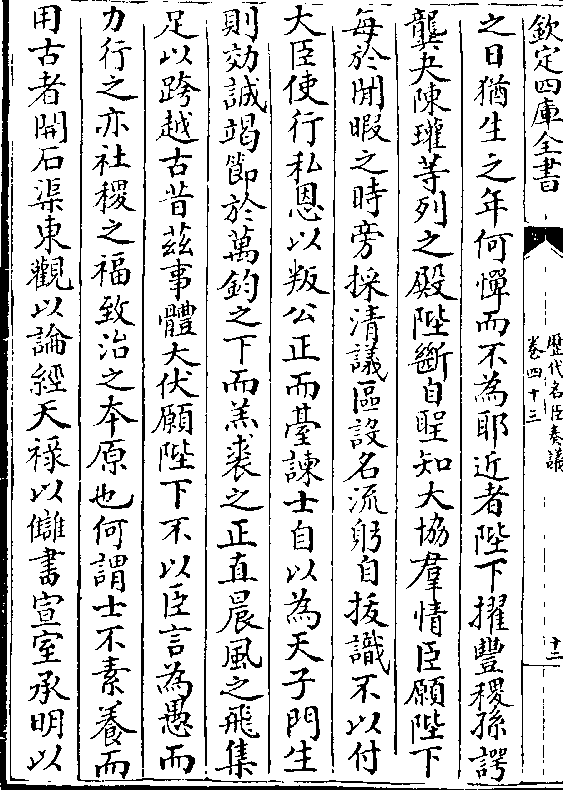 欽定四庫全書
歷代名臣奏議
卷四十三
十二
之日猶生之年何憚而不為耶近者陛下擢豐稷孫諤
龔夬陳瓘等列之殿陛斷自聖知大協羣情臣願陛下
每於閒暇之時旁採清議區設名流躬自拔識不以付
大臣使行私恩以叛公正而臺諫士自以為天子門生
則効誠竭節於萬鈞之下而羔裘之正直晨風之飛集
足以跨越古昔茲事體大伏願陛下不以臣言為愚而
力行之亦社稷之福致治之本原也何謂士不素養而
用古者開石渠東觀以論經天祿以讎書宣室承明以